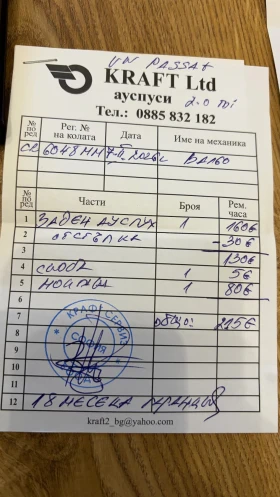 VW PASSAT
KRAFT Ltd
ауспуси 2.0 TDI
Тел.: 0885 832 182
№ по ред Рег. № на колата Дата Име на механика
Части Броя Рем. часа
1 ЗАДЕН АУСПУХ 1 160€
2 отстъпка -30€
3 130€
4 1 5€
5 1 80€
6
7 общо: 215€
8
9
10
11
12 18 МЕСЕЦА гаранция
КРАФТ СЕРВИЗ
СОФИЯ
kraft2_bg@yahoo.com